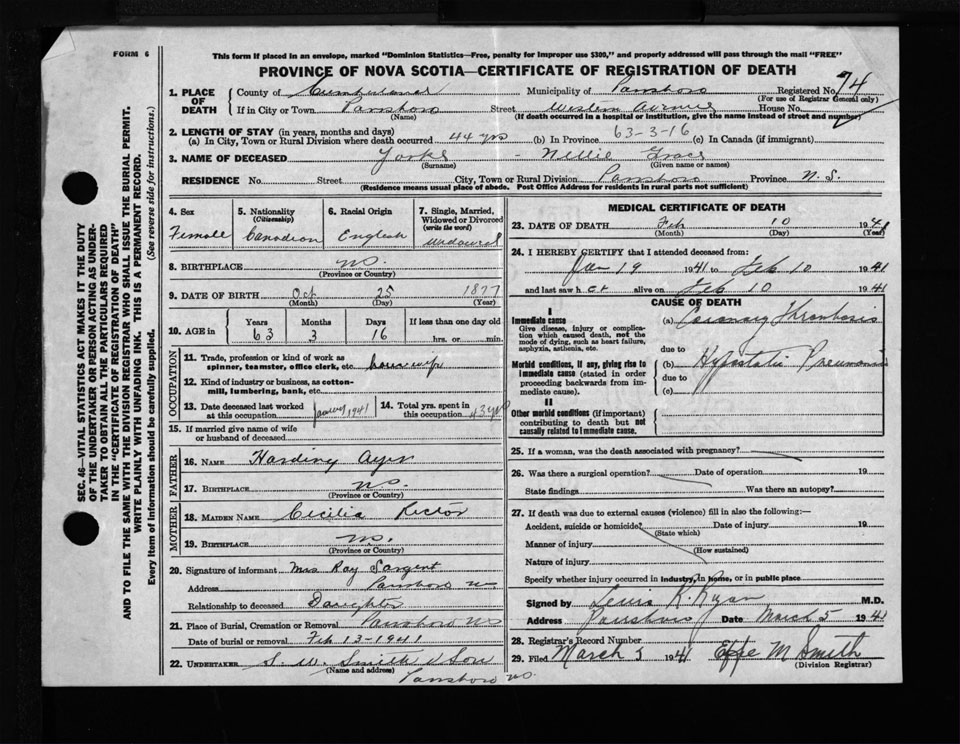 FORM 6
This form if placed in an envelope, marked "Dominion Statistics—Free, penalty for improper use $300," and properly addressed will pass through the mail "FREE"
PROVINCE OF NOVA SCOTIA—CERTIFICATE OF REGISTRATION OF DEATH
1. PLACE OF DEATH
County of Cumberland Municipality of Parrsboro Registered No. 74
(For use of Registrar General only)
If in City or Town Parrsboro Street Western Avenue House No.
(Name) (If death occurred in a hospital or institution, give the name instead of street and number)
2. LENGTH OF STAY (in years, months and days)
(a) In City, Town or Rural Division where death occurred 44 yrs (b) In Province 63-3-16 (c) In Canada (if immigrant)
3. NAME OF DECEASED Yorke - Nellie Grace
(Surname) (Given name or names)
RESIDENCE No. Street City, Town or Rural Division Parrsboro Province N.S.
(Residence means usual place of abode. Post Office Address for residents in rural parts not sufficient)
4. Sex Female
5. Nationality (Citizenship) Canadian
6. Racial Origin English
7. Single, Married, Widowed or Divorced (write the word) Widowed
8. BIRTHPLACE N.S.
(Province or Country)
9. DATE OF BIRTH Oct 25 1877
(Month) (Day) (Year)
10. AGE in Years 63 Months 3 Days 16 If less than one day old hrs. or min.
OCCUPATION
11. Trade, profession or kind of work as spinner, teamster, office clerk, etc. housewife
12. Kind of industry or business, as cotton-mill, lumbering, bank, etc.
13. Date deceased last worked at this occupation January 1941 14. Total yrs. spent in this occupation 43 yrs
15. If married give name of wife or husband of deceased
FATHER
16. NAME Harding Ayer
17. BIRTHPLACE N.S.
(Province or Country)
MOTHER
18. MAIDEN NAME Cecilia Rector
19. BIRTHPLACE N.S.
(Province or Country)
20. Signature of informant Mrs Ray Sargent
Address Parrsboro NS
Relationship to deceased Daughter
21. Place of Burial, Cremation or Removal Parrsboro NS
Date of burial or removal Feb 13-1941
22. UNDERTAKER S. W. Smith & Son
(Name and address)
Parrsboro N.S.
MEDICAL CERTIFICATE OF DEATH
23. DATE OF DEATH Feb 10 1941
(Month) (Day) (Year)
24. I HEREBY CERTIFY that I attended deceased from:
Jan 19 1941 to Feb 10 1941
and last saw her alive on Feb 10 1941
CAUSE OF DEATH
I
Immediate cause
Give disease, injury or complication which caused death, not the mode of dying, such as heart failure, asphyxia, asthenia, etc.
(a) Coronary Thrombosis
due to
Morbid conditions, if any, giving rise to immediate cause (stated in order proceeding backwards from immediate cause).
(b) Hypostatic Pneumonia
due to
(c)
II
Other morbid conditions (if important) contributing to death but not causally related to immediate cause.
25. If a woman, was the death associated with pregnancy?
26. Was there a surgical operation? Date of operation 19
State findings Was there an autopsy?
27. If death was due to external causes (violence) fill in also the following:—
Accident, suicide or homicide? Date of injury 19
(State which)
Manner of injury
(How sustained)
Nature of injury
Specify whether injury occurred in industry, in home, or in public place
Signed by Lewis R. Ryan M.D.
Address Parrsboro Date March 5 1941
28. Registrar's Record Number
29. Filed March 5 1941 Effie M Smith
(Division Registrar)
SEC. 46—VITAL STATISTICS ACT MAKES IT THE DUTY
OF THE UNDERTAKER OR PERSON ACTING AS UNDER-
TAKER TO OBTAIN ALL THE PARTICULARS REQUIRED
IN THE "CERTIFICATE OF REGISTRATION OF DEATH"
AND TO FILE THE SAME WITH THE DIVISION REGISTRAR WHO SHALL ISSUE THE BURIAL PERMIT.
WRITE PLAINLY WITH UNFADING INK. THIS IS A PERMANENT RECORD.
Every item of information should be carefully supplied. (See reverse side for instructions.)